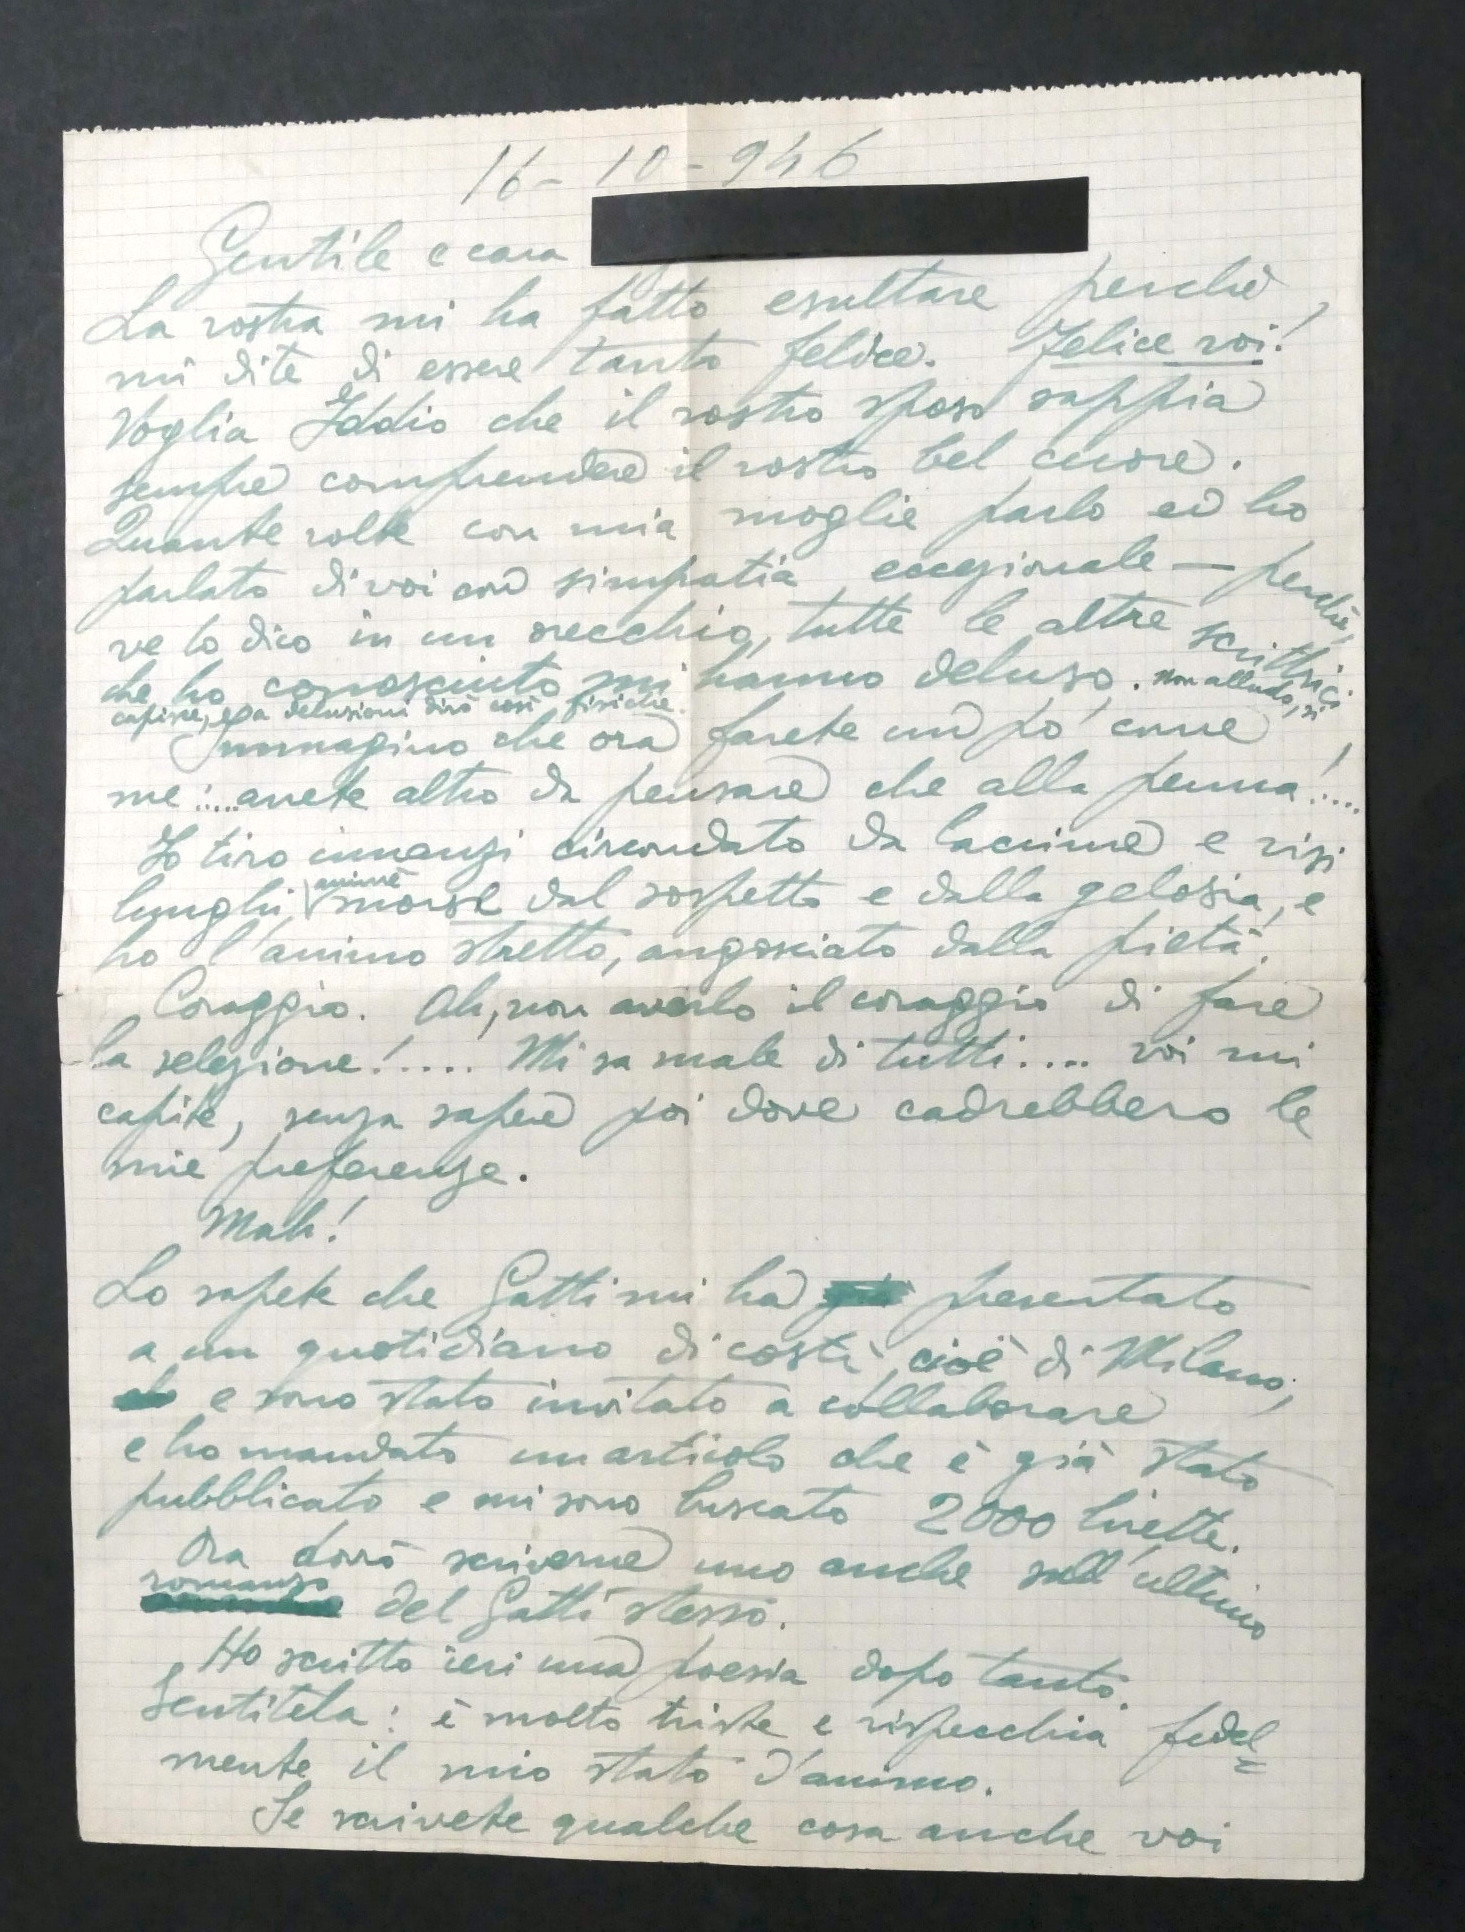 16-10-946
Gentile e cara
La vostra mi ha fatto esultare perchè,
mi dite di essere tanto felice. Felice voi!
Voglia Iddio che il vostro sposo sappia
sempre comprendere il vostro bel cuore.
Quante volte con mia moglie parlo ed ho
parlato di voi con simpatia eccezionale — perchè,
ve lo dico in un orecchio, tutte le altre scrittrici
che ho conosciuto mi hanno deluso. Non alludo, si
capisce, a delusioni dirò così fisiche.
Immagino che ora farete un pò come
me:.... avete altro da pensare che alla penna!....
Io tiro innanzi circondato da lacrime e visi
lunghi, anime morse dal sospetto e dalla gelosia, e
ho l'animo stretto, angosciato dalla pietà.
Coraggio. Oh, non averlo il coraggio di fare
la selezione!..... Mi sa male di tutti.... voi mi
capite, senza sapere poi dove cadrebbero le
mie preferenze.
Mah!
Lo sapete che Gatti mi ha presentato
a un quotidiano di costì, cioè di Milano,
e sono stato invitato a collaborare
e ho mandato un articolo che è già stato
pubblicato e mi sono buscato 2000 lirette.
Ora dovrò scriverne uno anche sull'ultimo
romanzo del Gatti stesso.
Ho scritto ieri una poesia dopo tanto.
Sentitela: è molto triste e rispecchia fedel=
mente il mio stato d'animo.
Se scrivete qualche cosa anche voi